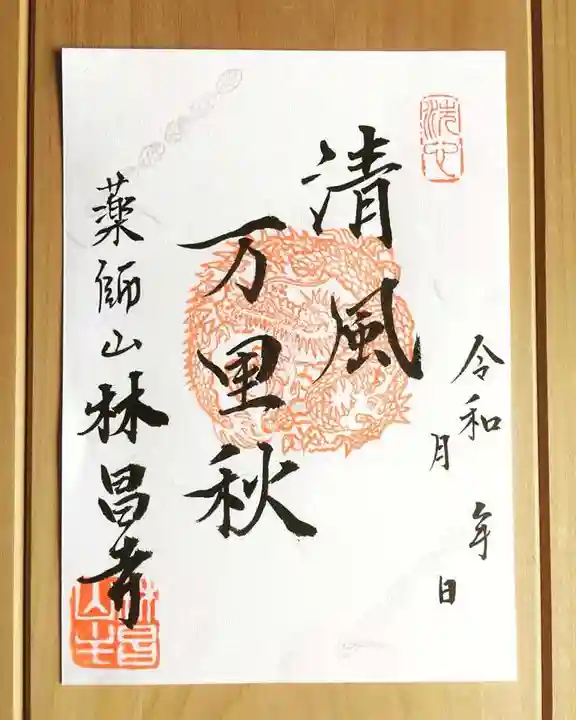 洗心
清風
万里秋
令和　年
月　日
薬師山林昌寺